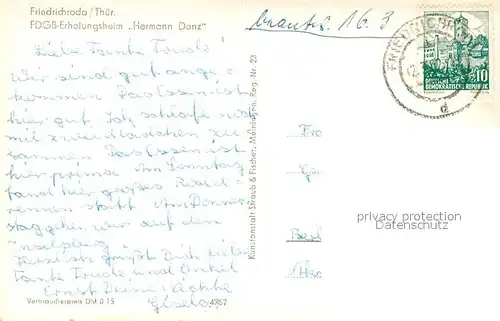 Friedrichroda / Thür.
FDGB-Erholungsheim „Hermann Danz"
beantw. 16. 3
Liebe Tante Trude!
Wir sind gut ange-
kommen Das Essen ist
hier gut Ich schlafe
mit zwei Mädchen zu
sammen Das Essen ist
hier prima Am Sonntag
fand hier großes Rodel
rennen statt Am Donners
tag gehen wir auf den
Inselsberg
Herzlich grüßt Dich liebe
Tante Trude und Onkel
Ernst Deine
Gisela
Verbraucherpreis DM 0.15
Kunstanstalt Straub & Fischer, Meiningen, Reg. Nr. 23
FRIEDRICHRODA
d
10
DEUTSCHE
DEMOKRATISCHE REPUBLIK
privacy protection
Datenschutz